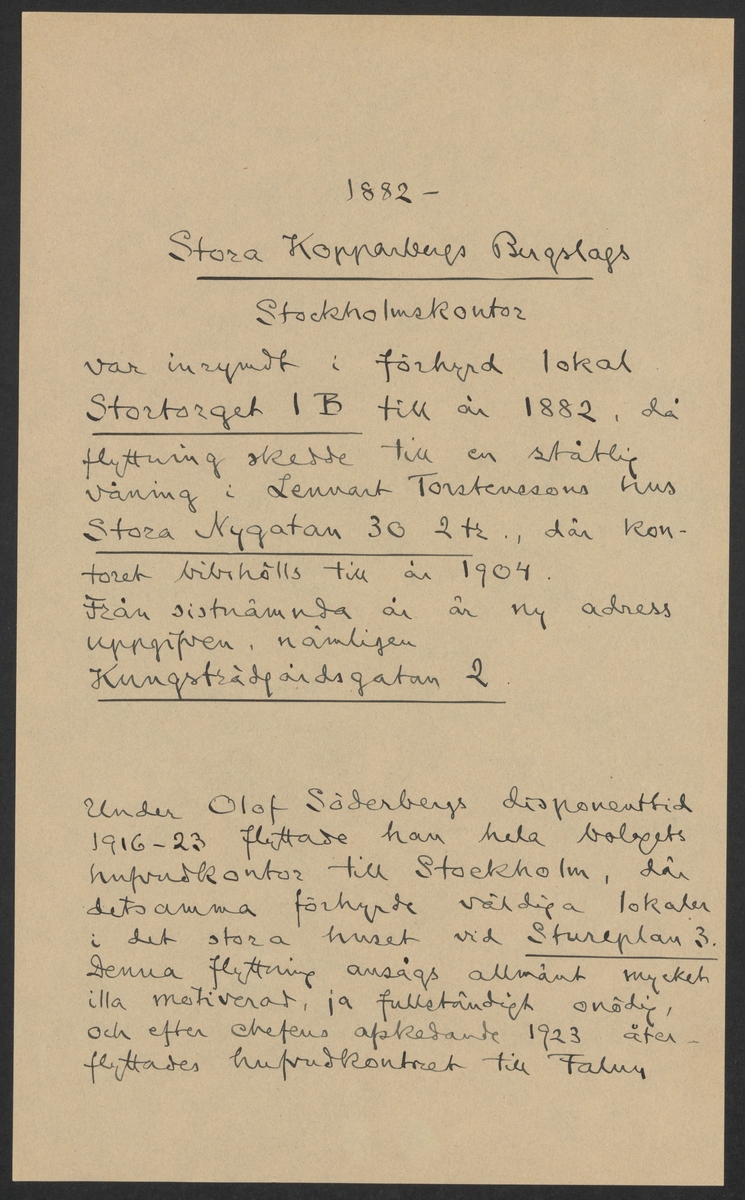 1882 –
Stora Kopparbergs Bergslags
Stockholmskontor
var inrymdt i förhyrd lokal
Stortorget 1 B till år 1882, då
flyttning skedde till en ståtlig
våning i Lennart Torstenssons hus
Stora Nygatan 30 2 tr., där kon-
toret bibehölls till år 1904.
Från sistnämnda år är ny adress
uppgifven, nämligen
Kungsträdgårdsgatan 2.
Under Olof Söderbergs disponenttid
1916–23 flyttade han hela bolagets
hufvudkontor till Stockholm, där
detsamma förhyrde väldiga lokaler
i det stora huset vid Stureplan 3.
Denna flyttning ansågs allmänt mycket
illa motiverad, ja fullständigt onödig,
och efter chefens afskedande 1923 åter-
flyttades hufvudkontoret till Falun